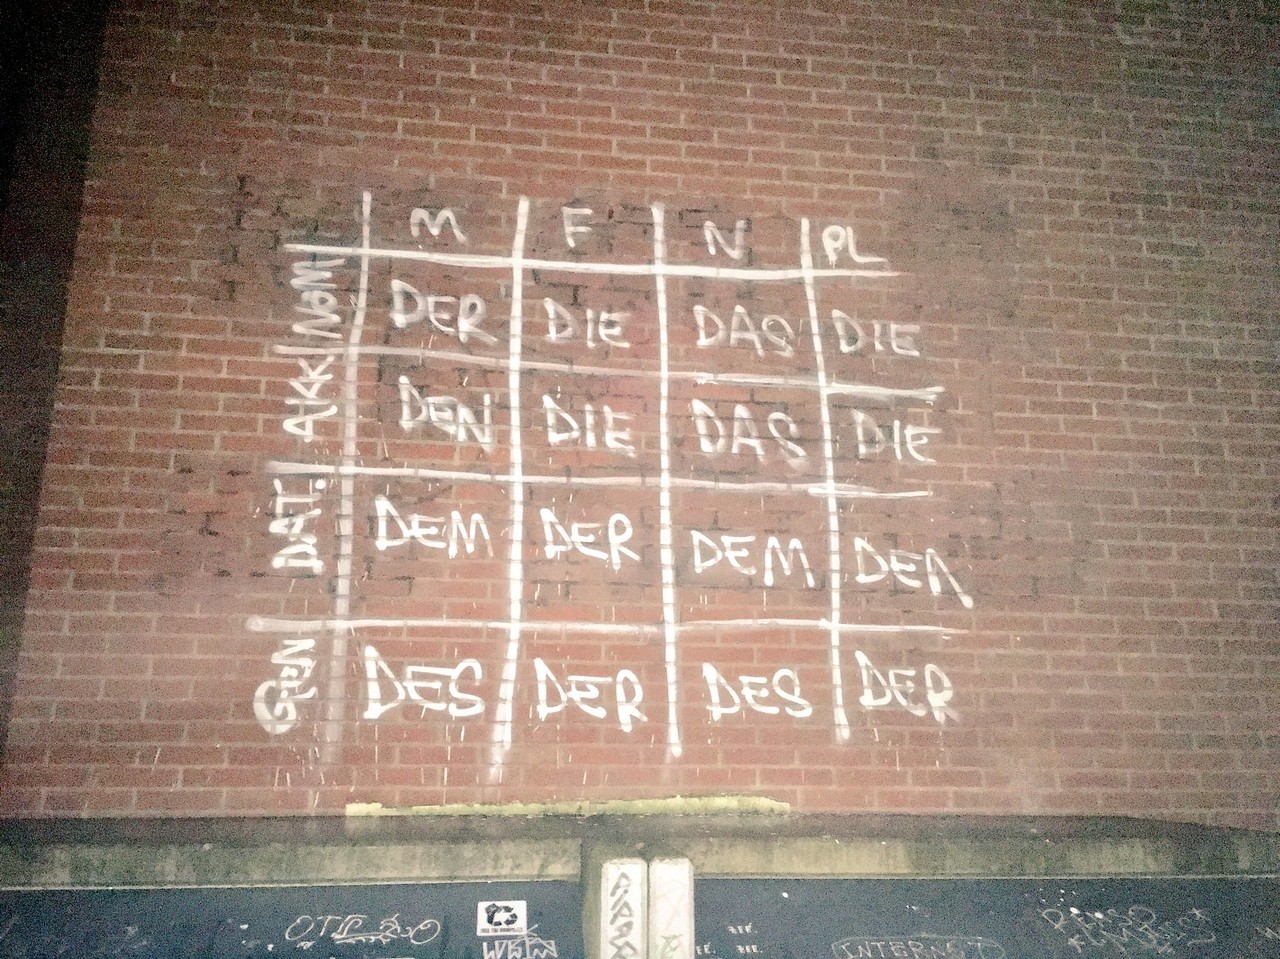 M F N PL
NOM DER DIE DAS DIE
AKK DEN DIE DAS DIE
DAT. DEM DER DEM DEN
GEN DES DER DES DER
INTERNET